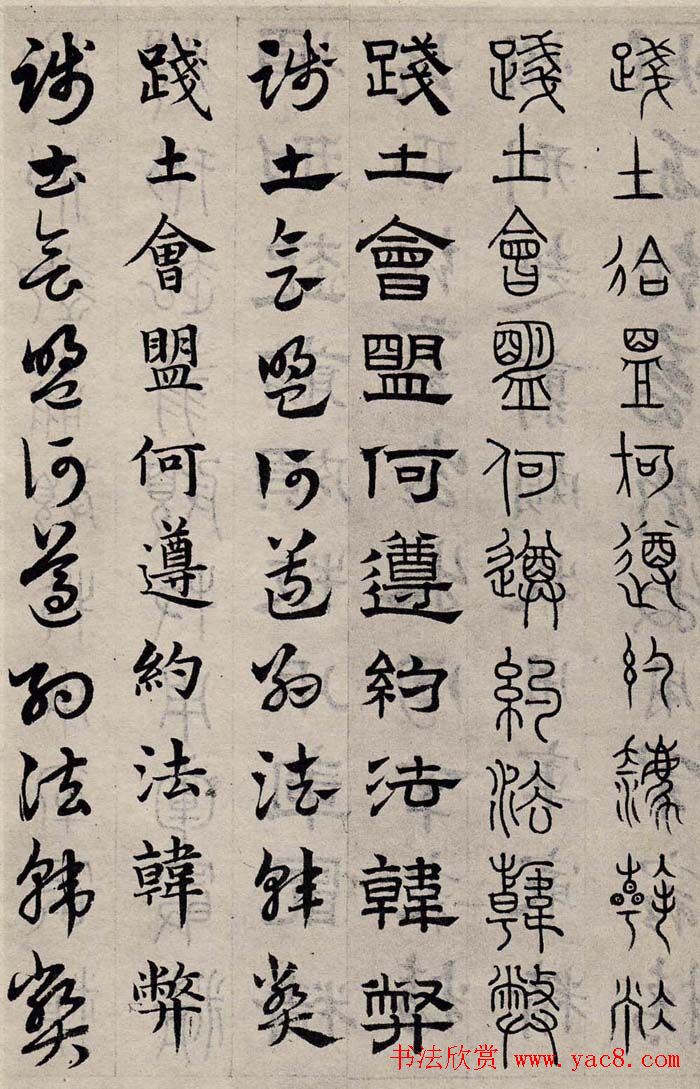 踐土會盟何遵約法韓弊
踐土會盟何遵約法韓弊
踐土會盟何遵約法韓弊
踐土會盟何遵約法韓弊
踐土會盟何遵約法韓弊
踐土會盟何遵約法韓弊
书法欣赏 www.yac8.com